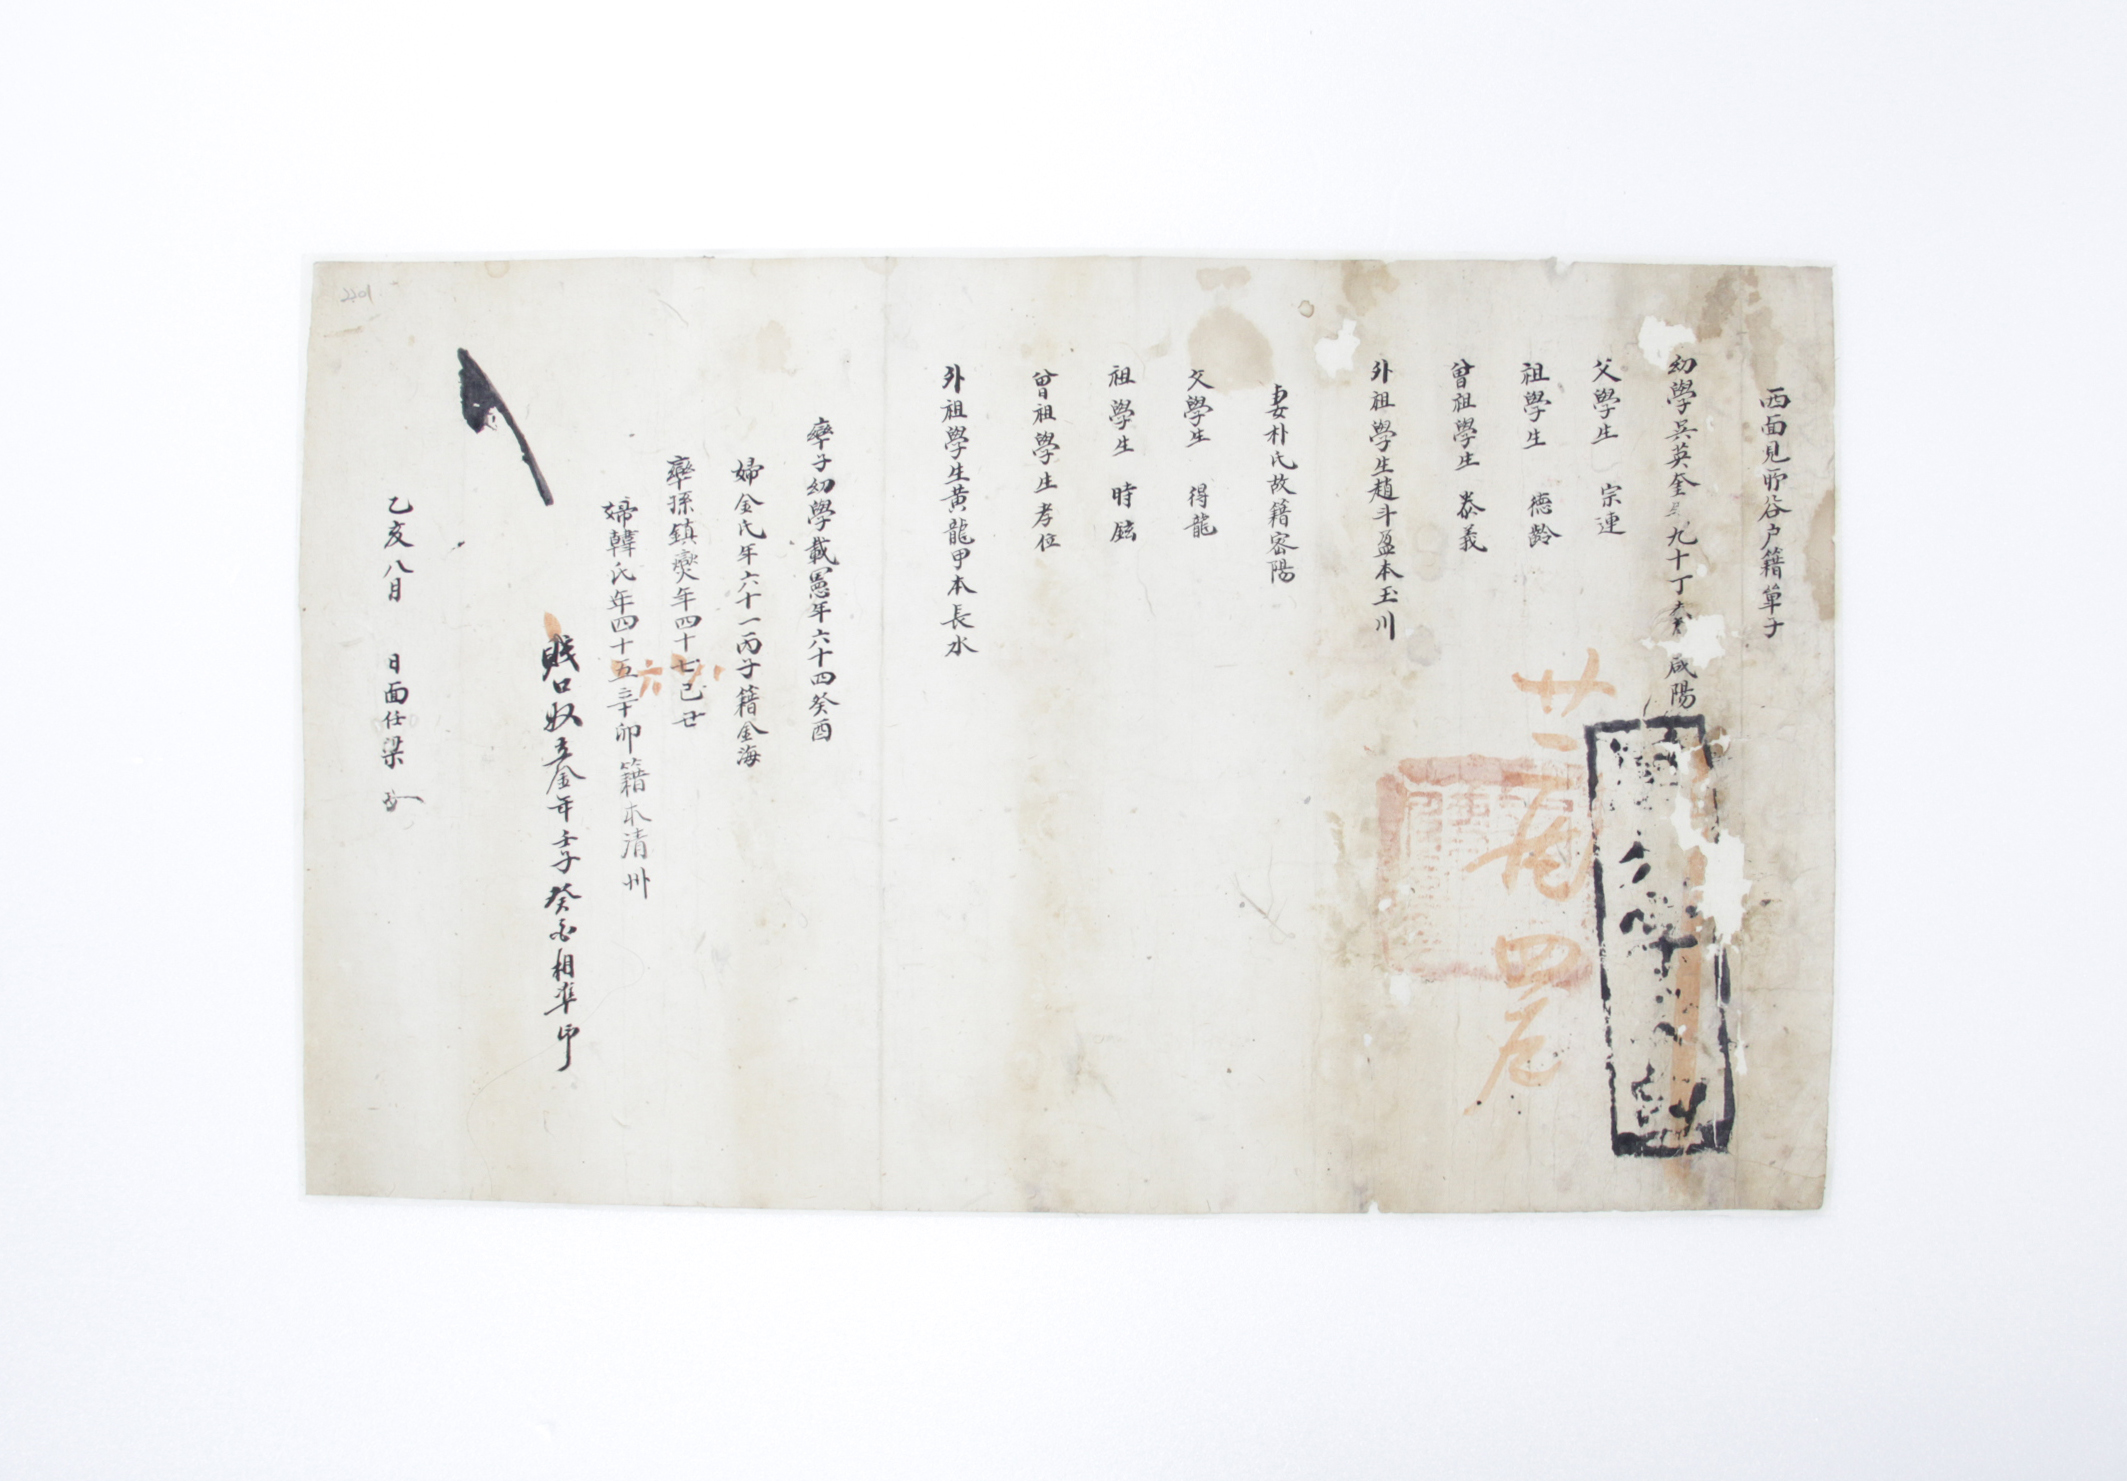 西面見所谷户籍單子
幼學吳英奎年九十丁亥 咸陽
父學生 宗連
祖學生 德齡
曾祖學生 泰義
外祖學生趙斗盈本玉川
妻朴氏故籍密陽
父學生 得龍
祖學生 時鉉
曾祖學生孝位
外祖學生黃龍甲本長水
率子幼學載憲年六十四癸酉
婦金氏年六十一丙子籍金海
率孫鎮奭年四十七己丑
婦韓氏年四十五辛卯籍本清州
賤口奴 金年壬子癸酉相準印
乙亥八月 日面任梁
廿二統四戶